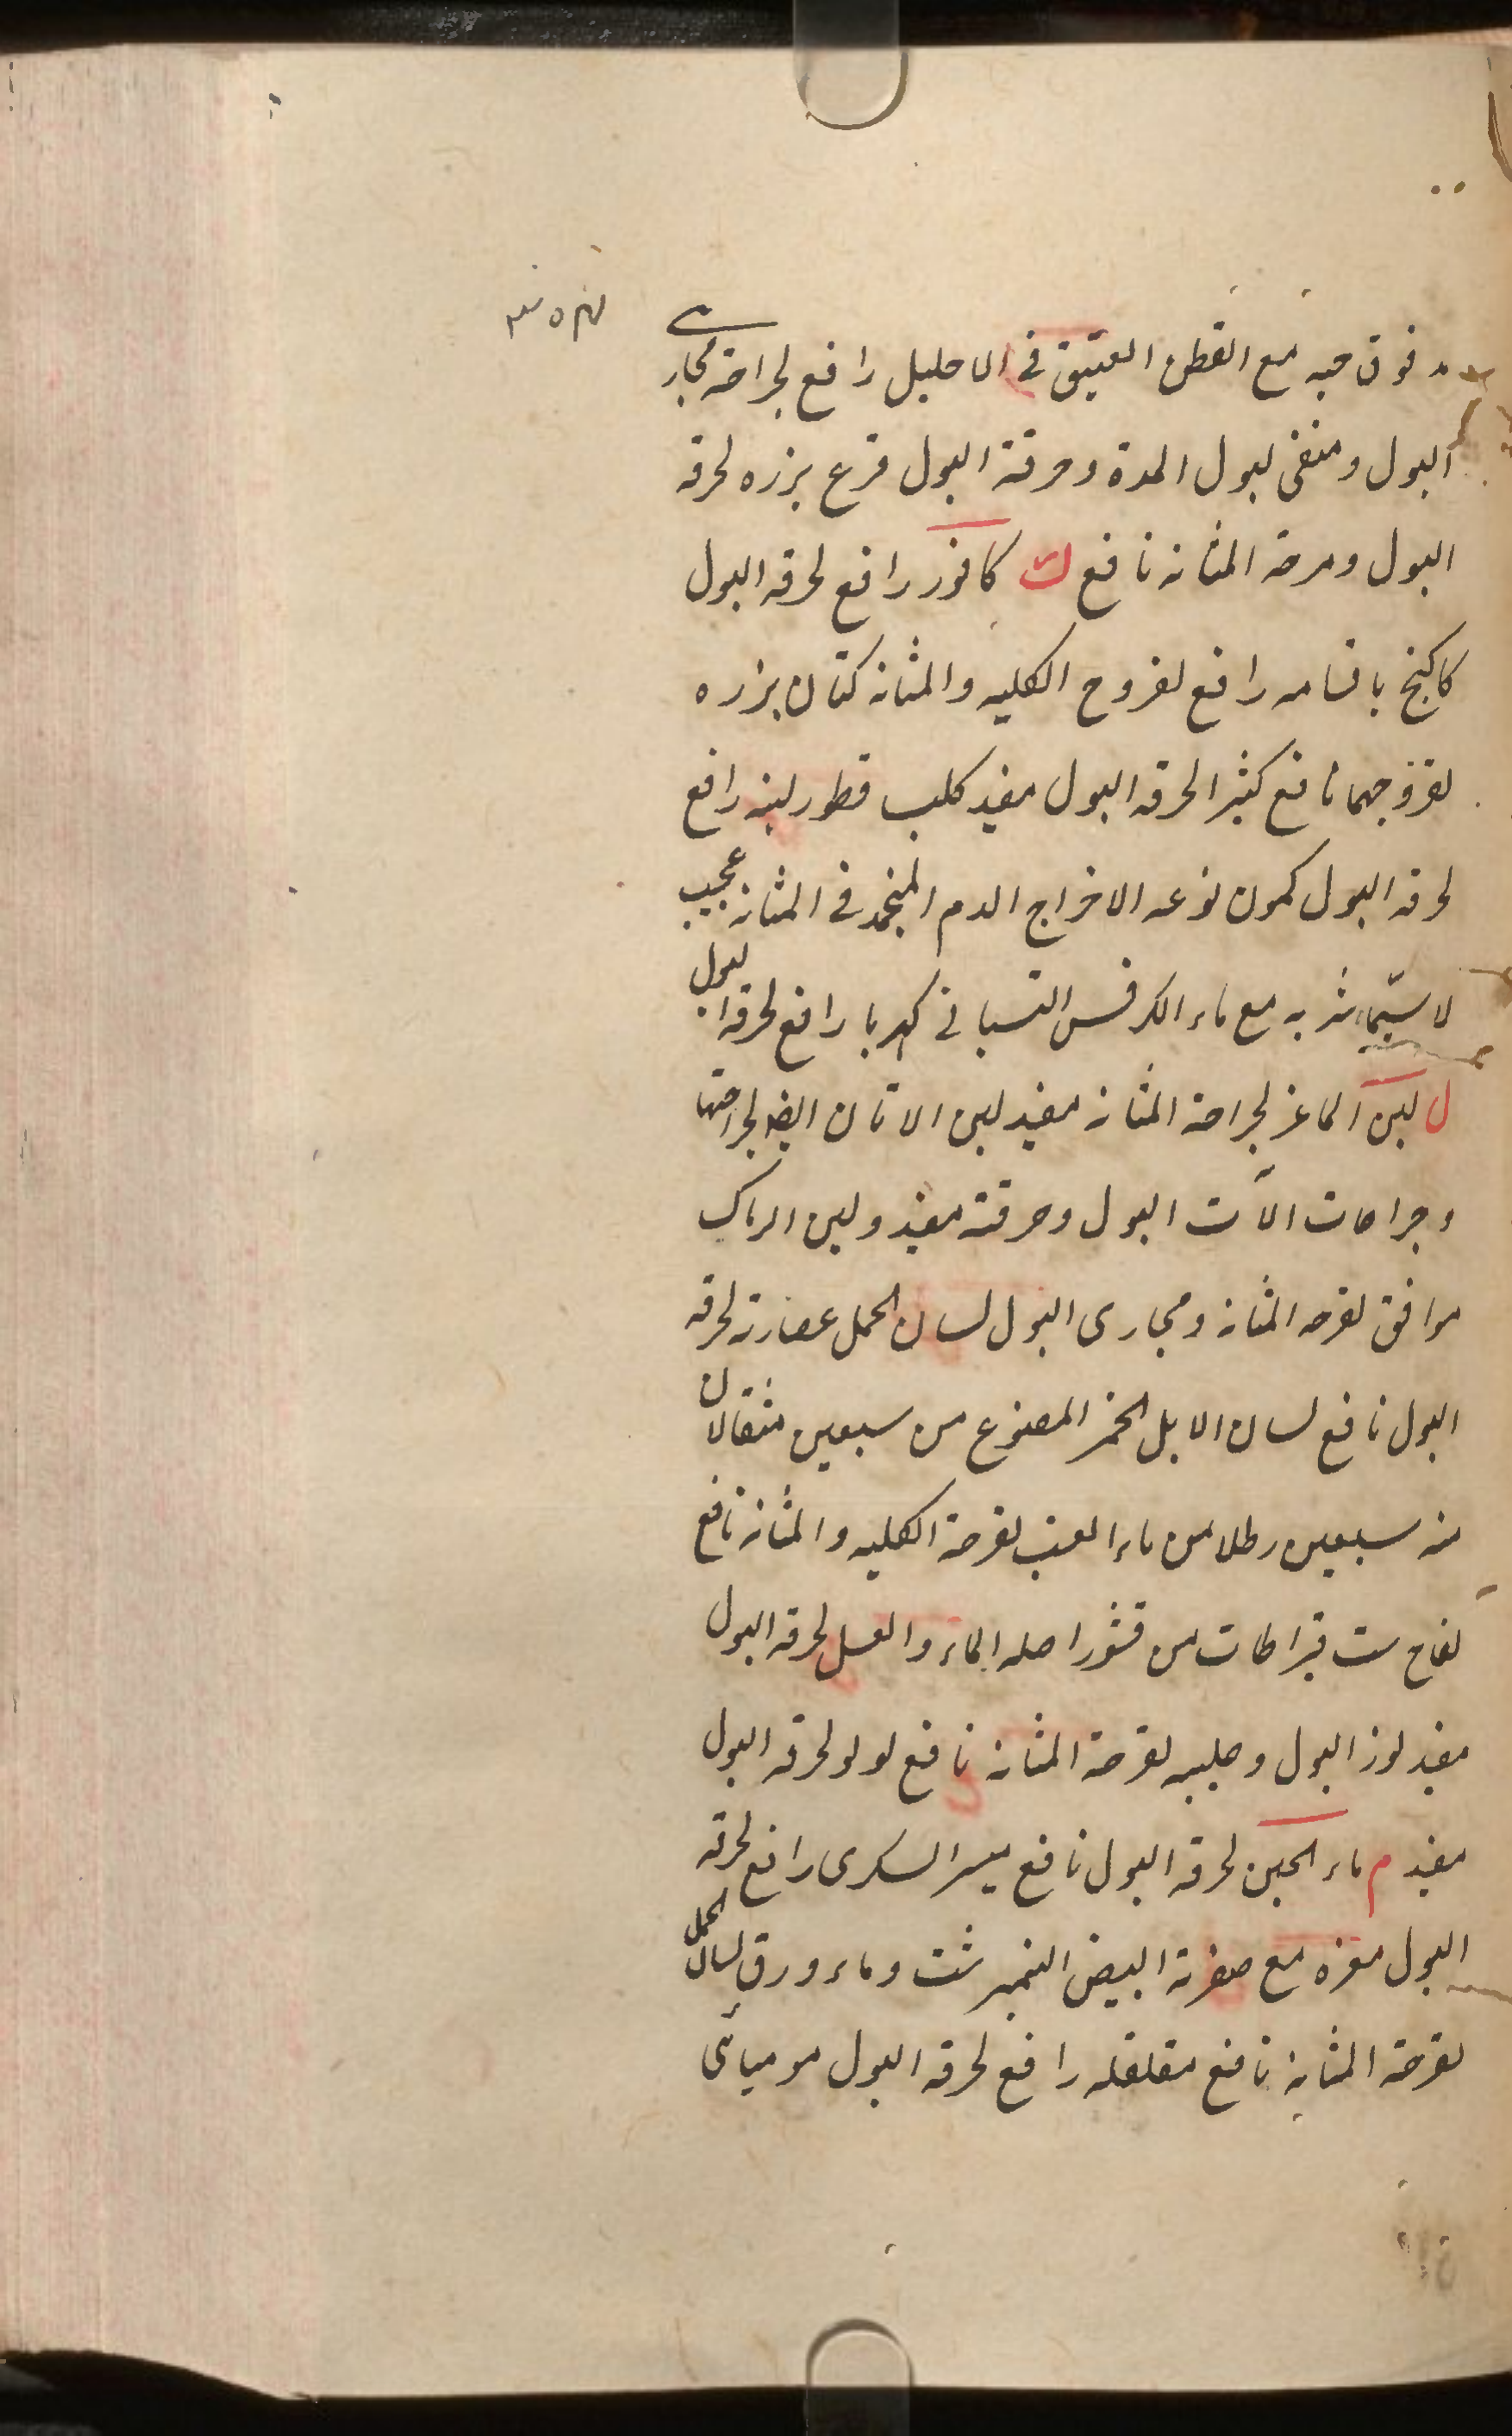 فوق حبه مع القطن العتيق في الاحليل رافع لجراحة مجاري
البول ومنقى لبول المدة وحرقة البول قرع بزره لحرقه
البول وحرقة المثانه نافع ك كافور رافع لحرقه البول
كاكنج باقسامه رافع لقروح الكليه والمثانه كتان بزره
لقروحهما نافع كثيرا لحرقه البول مفيد كلب قطور لبنه رافع
لحرقه البول كمون نوعه الاخراج الدم المنجمد في المثانه عجيب
لاسيما شربه مع ماء الكرفس البستاني كهربا رافع لحرقه البول
ل لبن الماعز لجراحة المثانه مفيد لبن الاتان ايضا لجراحتها
وجراحات آلات البول وحرقته مفيد ولبن الرماك
موافق لقرحه المثانه ومجارى البول لسان الحمل عصارته لحرقه
البول نافع لسان الابل الخمر المصنوع من سبعين مثقالا
منه سبعين رطلا من ماء العنب لقرحة الكليه والمثانه نافع
لفاح ست قيراطات من قشور اصله الماء والعسل لحرقه البول
مفيد لوز البول وحليبه لقرحة المثانه نافع لولو لحرقه البول
مفيد م ماء الجبن لحرقه البول نافع ميسر السكرى رافع لحرقه
البول موزه مع صفرة البيض النمبرشت وماء ورق لسان الحمل
لقرحة المثانه نافع مقلقله رافع لحرقه البول موميائى